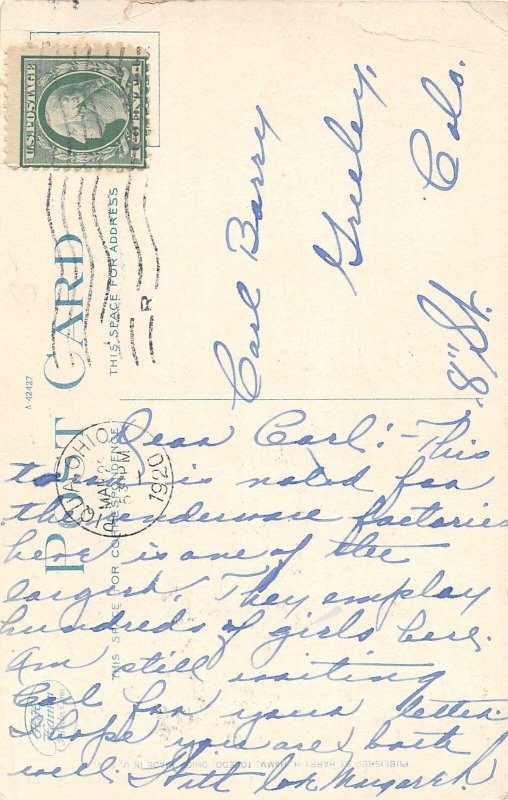 U.S. POSTAGE
POST CARD
THIS SPACE FOR ADDRESS
THIS SPACE FOR CORRESPONDENCE
A-42427
PIQUA, OHIO
MAR 2
5 30 PM
1920
R
Carl Barry
Greeley,
Colo.
8" St.
Dear Carl:- This
town is noted for
the underware factories
here is one of the
largest. They employ
hundreds of girls here.
Am still waiting
Carl for your letter.
Hope you are both
well.
Margaret.
PUBLISHED BY HARRY H. HAMM, TOLEDO, OHIO. MADE IN U.